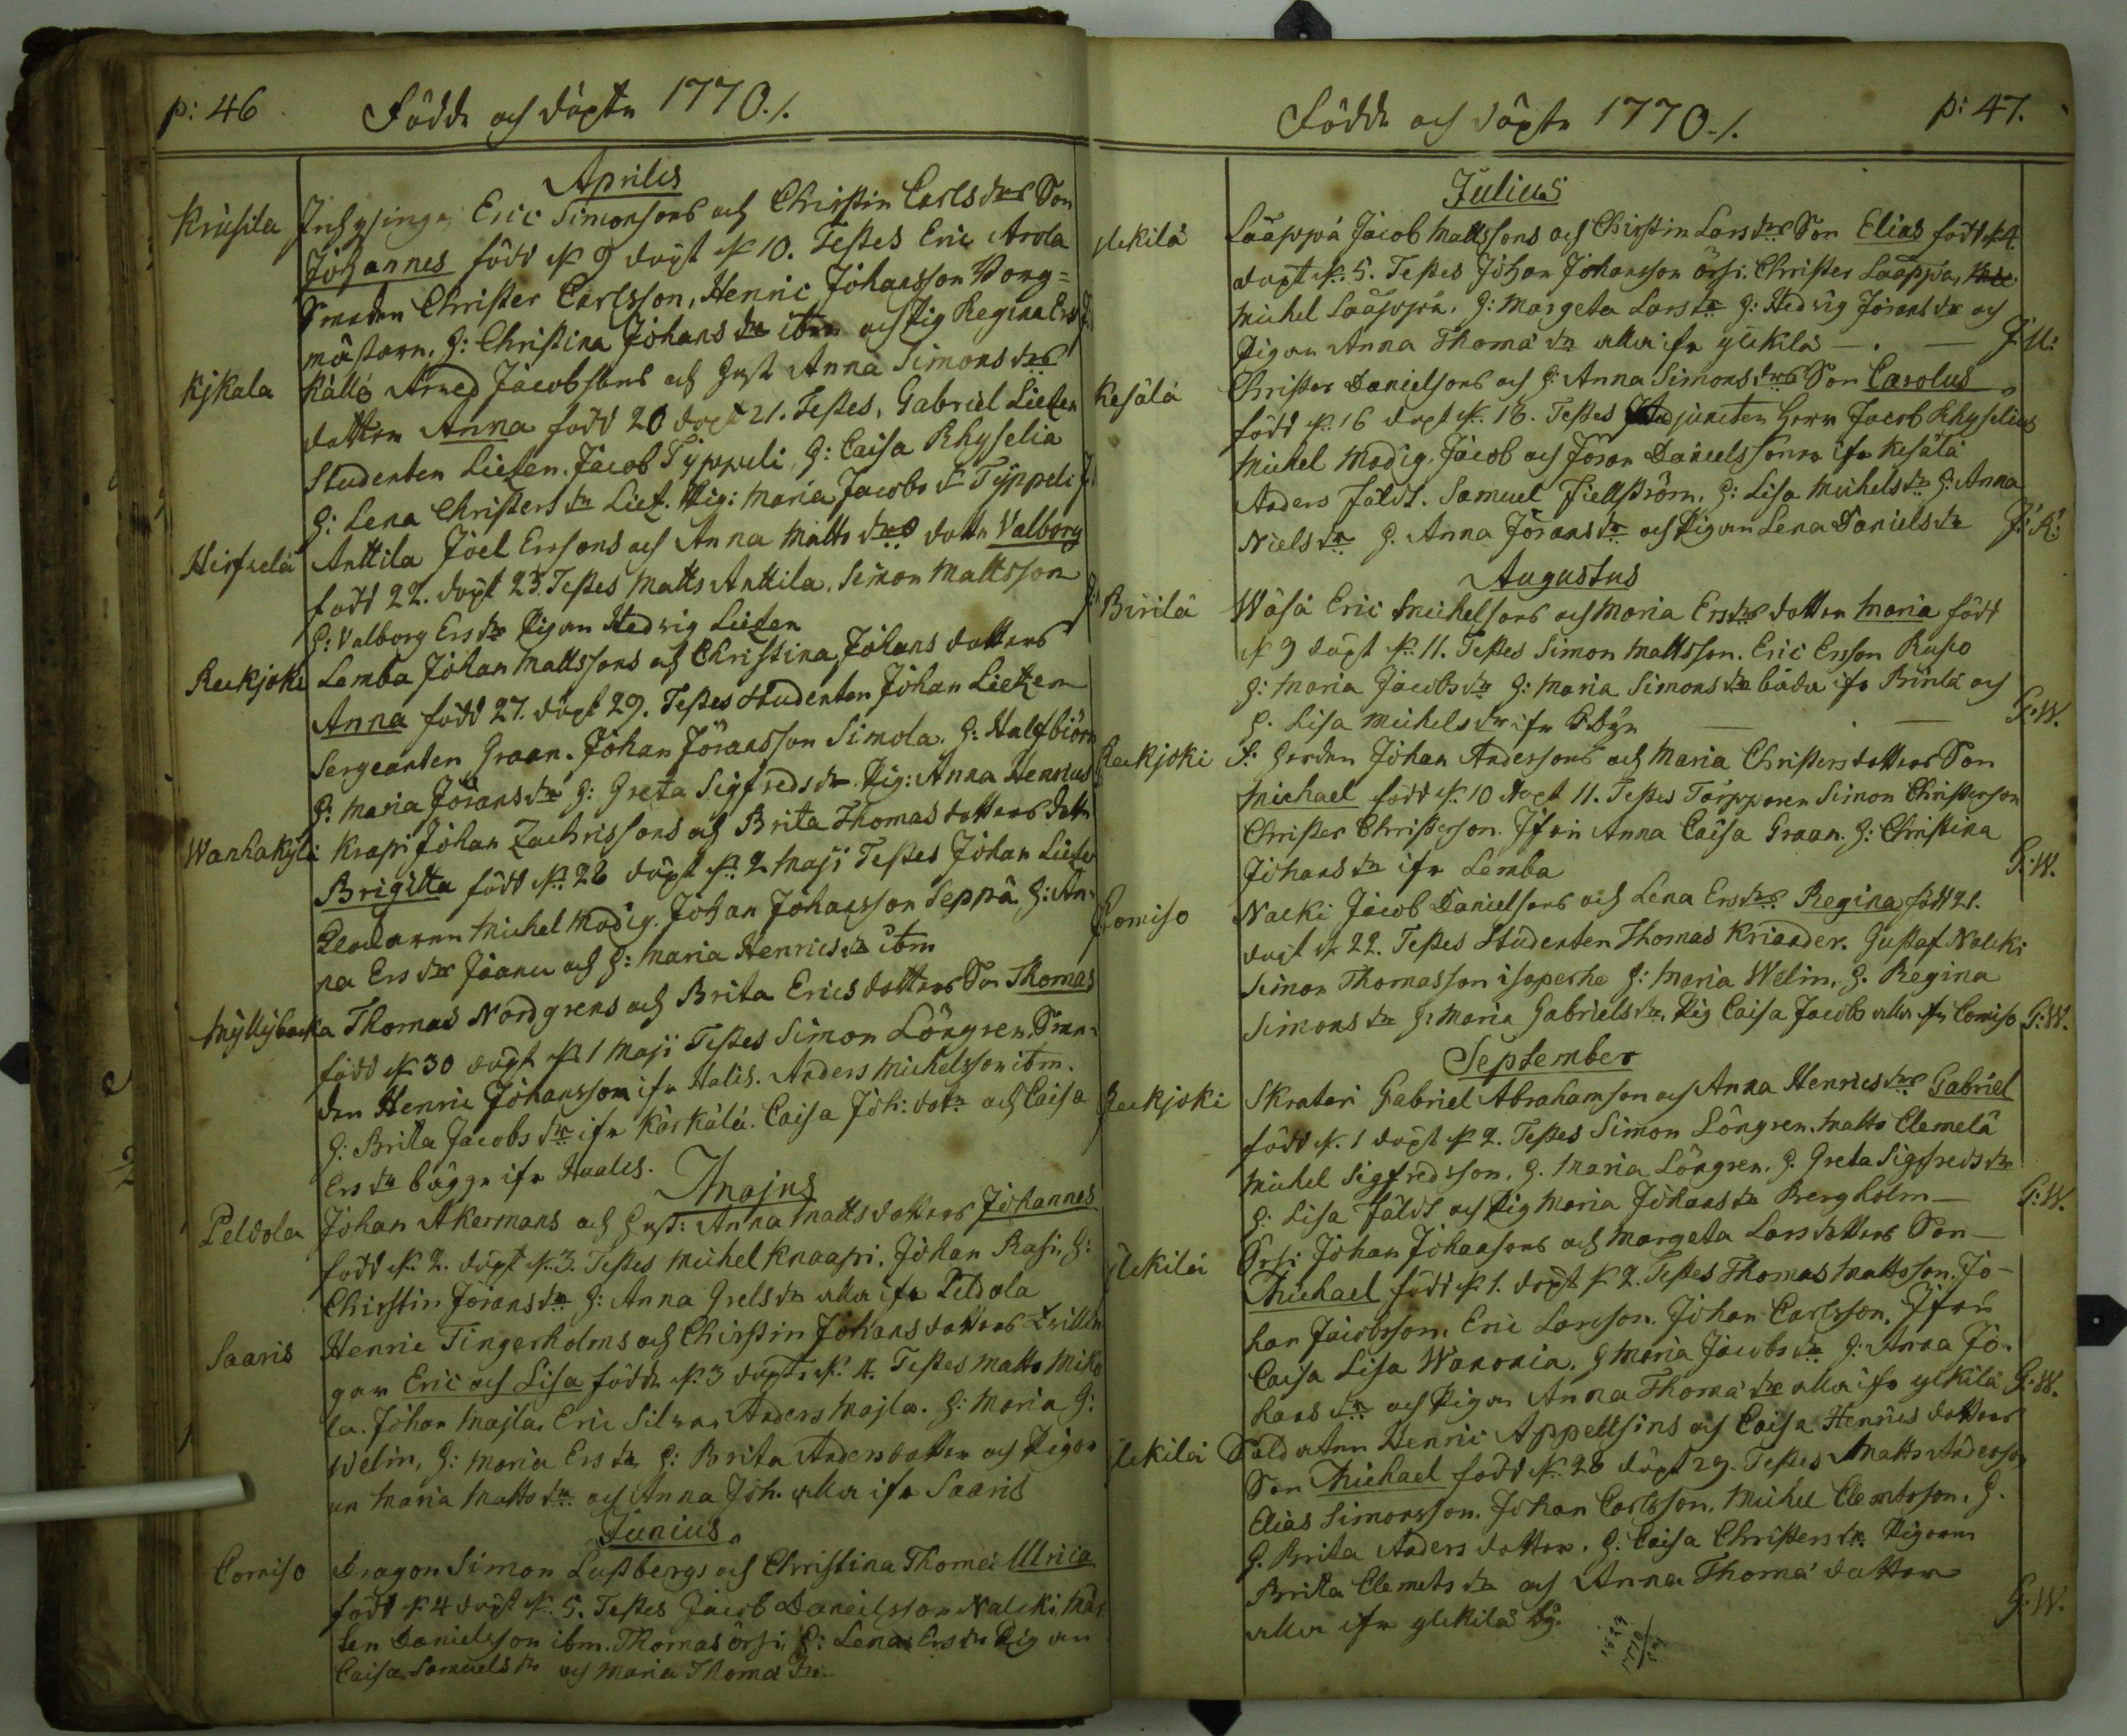 p: 46
Födde och döpte 1770./.
Aprilis
Krusila Inhysinge Eric Simonsons och Christin Carls drs Son
Johannes född d 9 döpt d 10. Testes Eric Arola
Smeden Christer Carlsson, Henric Johansson Borg=
mästarn, H: Christina Johans dr ibm och Pig Regina Ers
Kjkala Källö Arved Jacobsons och Hust Anna Simons drs
dotter Anna född 20 döpt 21. Testes, Gabriel Lietzen
Studenten Lietzen. Jacob Typpeli, H: Caisa Rhyselia
H: Lena Christers dr Lietz. Pig: Maria Jacobs dr Typpeli
Hirfuelä Anttila Joel Erssons och Anna Matts drs dotter Valborg
född 22. döpt 23. Testes Matts Anttila. Simon Mattsson
H: Valborg Ers dr Pigan Hedvig Lietzen
Reckjoki Lemba Johan Mattssons och Christina Johans dotters
Anna född 27. döpt 29. Testes Studenten Johan Lietzen
Sergeanten Graan. Johan Jöransson Simola. H: Halfbiörn
H: Maria Jörans dr H: Greta Sigfreds dr. Pig: Anna Henrics
Wanhakylä Krapi Johan Zachrissons och Brita Thomas dotters dotter
Brigitta född d. 28 döpt d. 2 Maji Testes Johan Lietzen
Michel Modig. Johan Johansson Seppä H: An-
na Ers dr Jaanu och H: Maria Henrics dr ibm
Myllybacka Thomas Nordgrens och Brita Erics dotters Son Thomas
född d 30 döpt d. 1 Maji Testes Simon Löngren Sme-
den Henric Johansson ifr Halis. Anders Michelsson ibm.
H: Brita Jacobs dr ifr Kärkälä. Caisa Joh: dotr och Caisa
Ers dr bägge ifr Haalis.
Majus
Peldola Johan Akermans och Hust: Anna Matts dotters Johannes
född d. 2. döpt d. 3. Testes Michel Knaapi. Johan Rasi, H:
Christin Jörans dr H: Anna Grels dr alla ifr Peldola
Saaris Henric Tingerholms och Christin Johans dotters Tvillin
gar Eric och Lisa födde d. 3 döpte d. 4. Testes Matts Mikko
la. Johan Majla. Eric Silvan Anders Majla. H: Maria H:
Welin, H: Maria Ers dr, H: Brita Andersdotter och Pigor
ne Maria Matts dr och Anna Joh. alla ifr Saaris
Junius
Comiso Dragon Simon Lustbergs och Christina Thomæ Ulrica
född d 4 döpt d. 5. Testes Jacob Danielsson Nalcki, Mår
ten Danielsson ibm. Thomas örsi H: Lena Ers dr Pigan
Caisa Samuels dr och Maria Thomæ dr
Födde och döpte 1770./.
p: 47.
Julius
ylekilä Lääppä Jacob Mattssons och Christin Lars drs Son Elias född d. 4
döpt d. 5. Testes Johan Johansson örsi. Christer Lääppä,
Michel Lääppä. H: Margeta Lars dr H: Hedvig Jörans dr och
Pigan Anna Thomæ dr alla ifr ylekilä
Kesälä Christer Danielsons och H: Anna Simons drs Son Carolus
född d. 16 döpt d. 18. Testes Adjuncten Herr Jacob Rhyselius
Michel Modig. Jacob och Jöran Danielssöner ifr Kesälä
Anders Fäldt. Samuel Fiellström. H: Lisa Michels dr H: Anna
Niels dr H. Anna Jörans dr och Pigan Lena Daniels dr
Augustus
Birilä Wäsä Eric Michelsons och Maria Ers drs dotter Maria född
d 9 döpt d. 11. Testes Simon Mattsson. Eric Ersson Ruso
H: Maria Jacobs dr H: Maria Simons dr båda ifr Birilä och
H. Lisa Michels dr ifr G:W.
Reckjoki Johan Anderssons och Maria Christersdotters Son
Michael född d. 10 döpt 11. Testes Torpparen Simon Christerson
Christer Christerson. Jfrn Anna Caisa Graan. H: Christina
Johans dr ifr Lemba G:W.
Comiso Nalcki Jacob Danielsons och Lena Ers drs Regina född 21.
döpt d. 22. Testes Studenten Thomas Kriander. Gustaf Nalcki
Simon Thomasson isoperhe H: Maria Welin, H. Regina
Simons dr H: Maria Gabriels dr. Pig Caisa Jacobs alla ifr Comiso G:W.
September
Reckjoki Skratari Gabriel Abrahamson och Anna Henrics drs Gabriel
född d. 1 döpt d 2. Testes Simon Löngren. Matts Clemelä
Michel Sigfredsson. H. Maria Löngren. H. Greta Sigfreds dr
H: Lisa Fäldt och Pig Maria Johans dr Bergholm G:W.
ylekilä Örsi Johan Johansons och Margeta Lars dotters Son
Michael född d 1. döpt d 2. Testes Thomas Mattsson. Jo-
han Jacobsson. Eric Larsson. Johan Carlsson, Jfrn
Caisa Lisa Wanonia. H Maria Jacobs dr H: Anna Jo-
hans dr och Pigan Anna Thomæ dr alla ifr ylekilä G:W.
ylekilä Soldaten Henric Appellsins och Caisa Henrics dotters
Son Michael född d. 28 döpt 29. Testes Matts Anderson
Elias Simonsson. Johan Carlsson. Michel Clemtsson. H.
H. Brita Anders dotter. H: Caisa Christers dr. Pigorne
Brita Clemets dr och Anna Thomæ dotter
alla ifr ylekilä by. G:W.